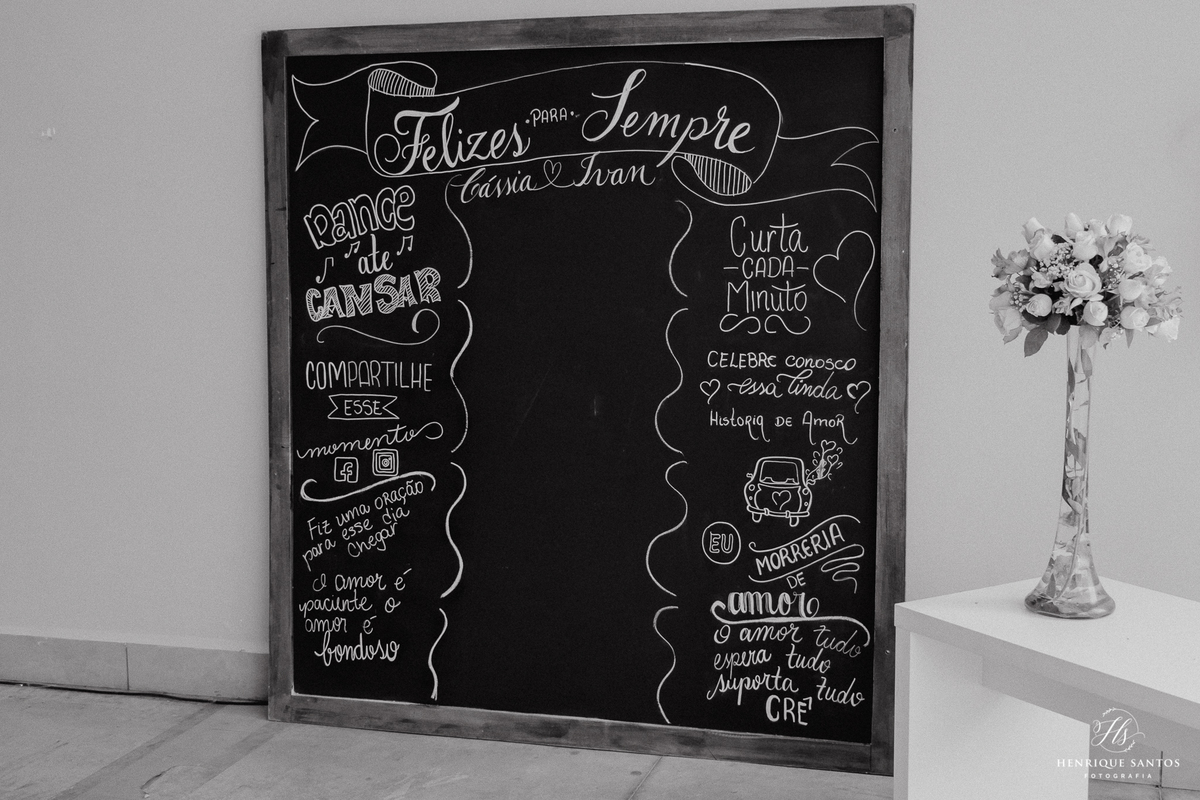 Felizes PARA Sempre
Cássia Ivan
Dance
ate
CANSAR
COMPARTILHE
ESSE
momento
Fiz uma oração
para esse dia
chegar
O amor é
paciente o
amor é
bondoso
Curta
CADA
Minuto
CELEBRE conosco
essa linda
Historia DE Amor
EU
MORRERIA
DE
amor
O amor tudo
espera tudo
suporta tudo
CRÊ
Hs
HENRIQUE SANTOS
FOTOGRAFIA